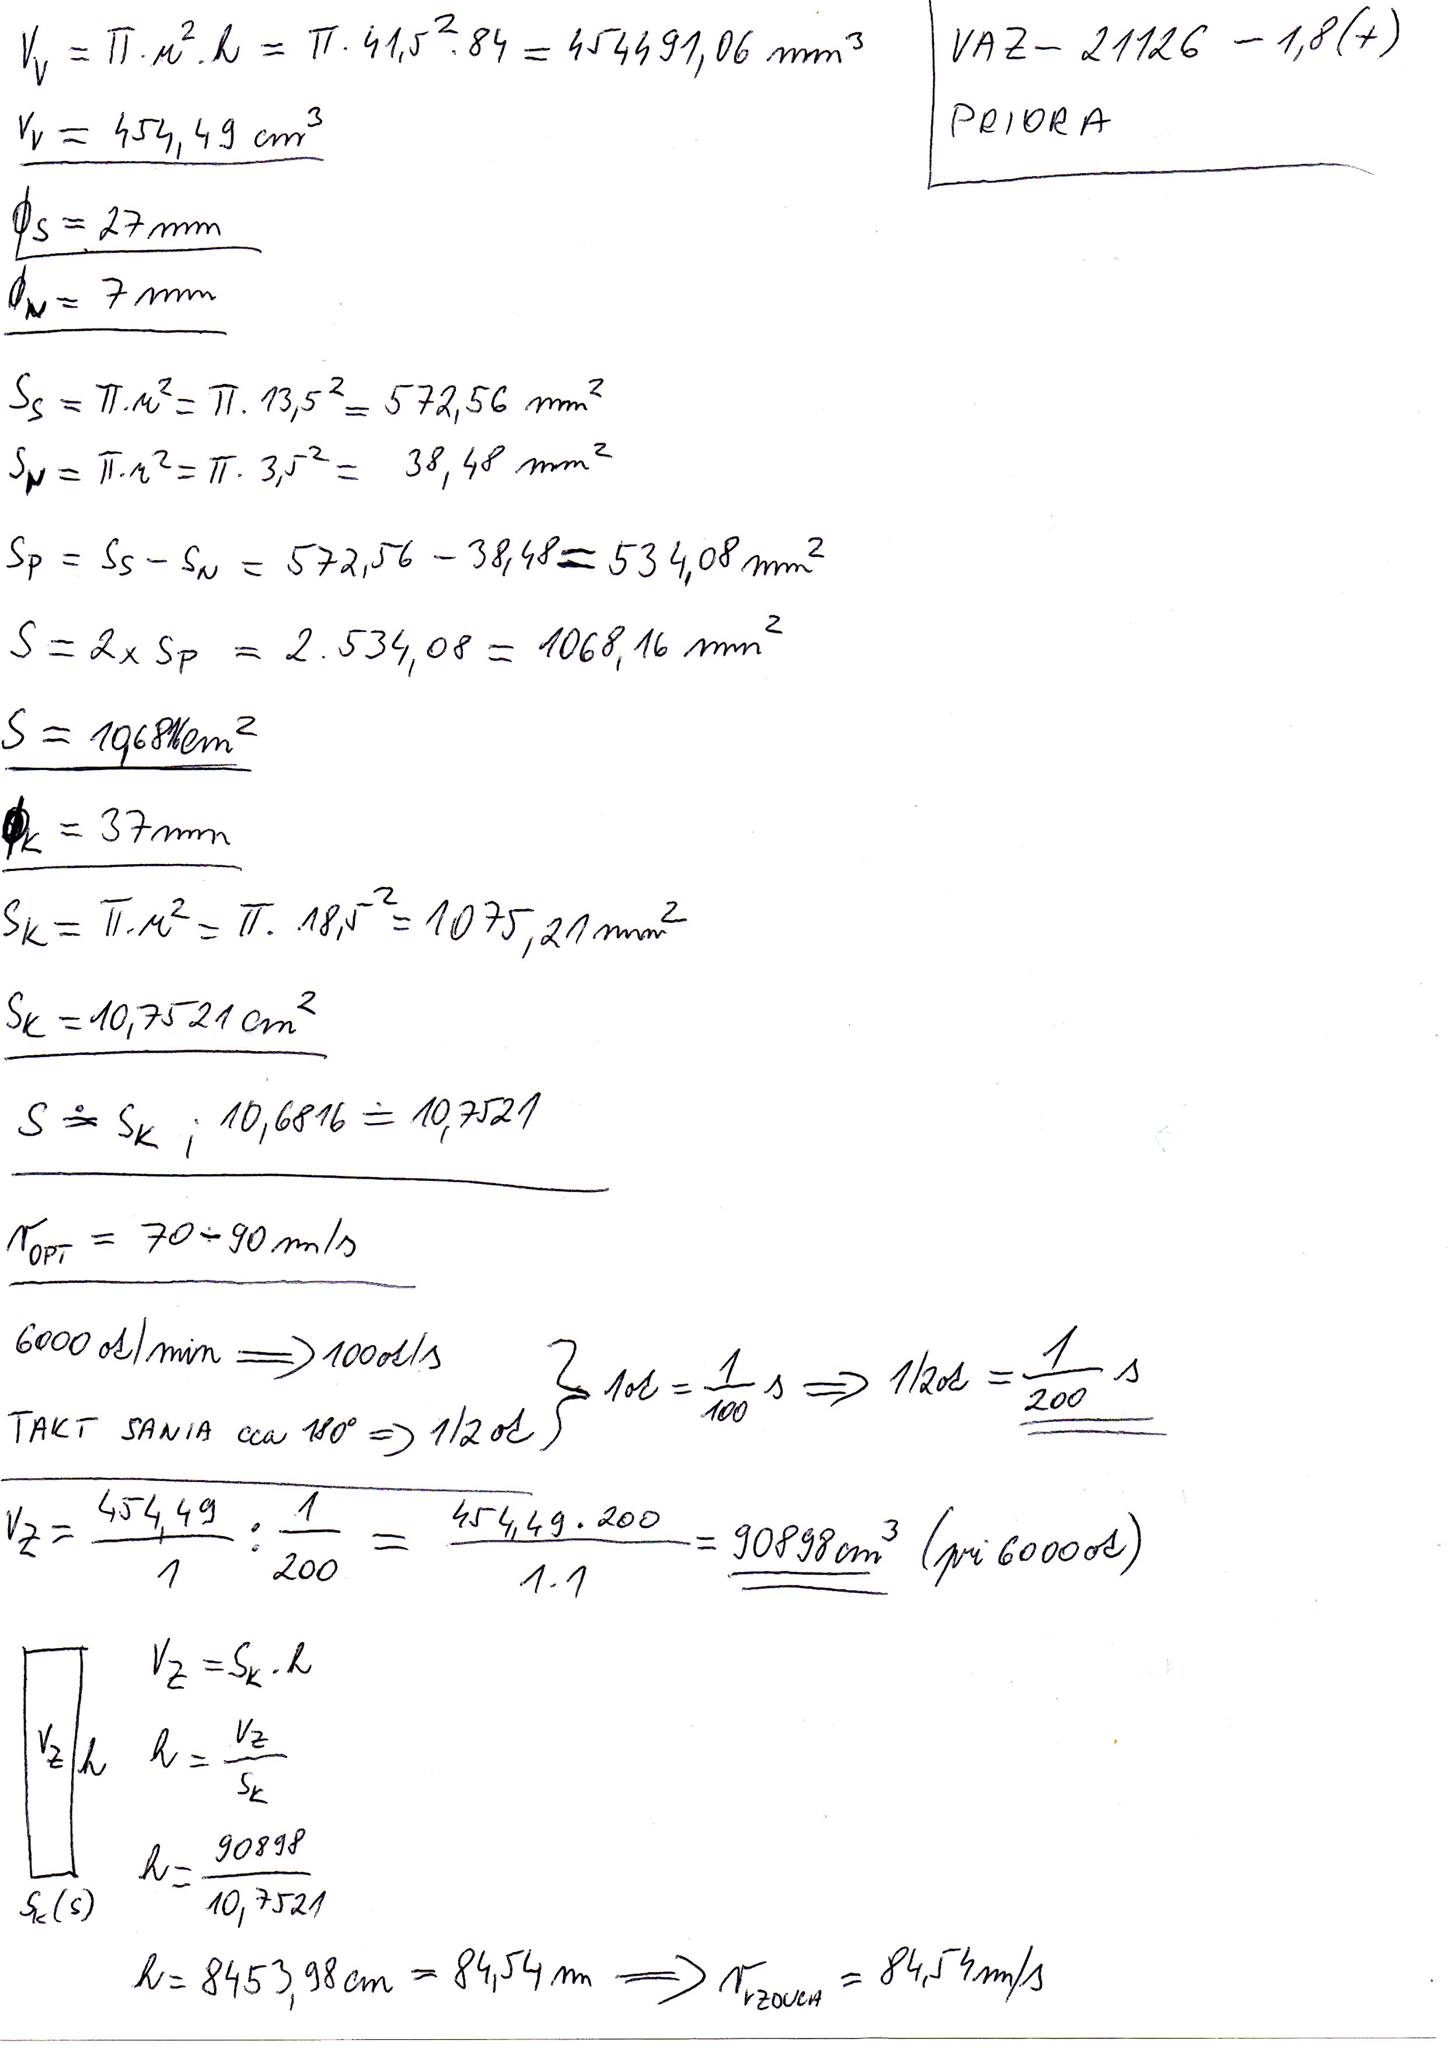 V_V = π.r².h = π.41,5².84 = 454491,06 mm³
VAZ - 21126 - 1,8(+)
PRIORA
V_V = 454,49 cm³
ϕ_S = 27 mm
ϕ_N = 7 mm
S_S = π.r² = π.13,5² = 572,56 mm²
S_N = π.r² = π.3,5² = 38,48 mm²
S_P = S_S - S_N = 572,56 - 38,48 = 534,08 mm²
S = 2x S_P = 2.534,08 = 1068,16 mm²
S = 10,6816 cm²
ϕ_K = 37 mm
S_K = π.r² = π.18,5² = 1075,21 mm²
S_K = 10,7521 cm²
S ≐ S_K ; 10,6816 ≐ 10,7521
v_OPT = 70 ÷ 90 m/s
6000 ot/min ⇒ 100 ot/s
TAKT SANIA cca 180° ⇒ 1/2 ot
} 1 ot = 1/100 s ⇒ 1/2 ot = 1/200 s
V_Z = 454,49/1 : 1/200 = 454,49.200/1.1 = 90898 cm³ (pri 6000 ot)
V_Z = S_K.h
V_Z h
h = V_Z/S_K
h = 90898/10,7521
S_K(S)
h = 8453,98 cm = 84,54 m ⇒ v_VZDUCHA = 84,54 m/s